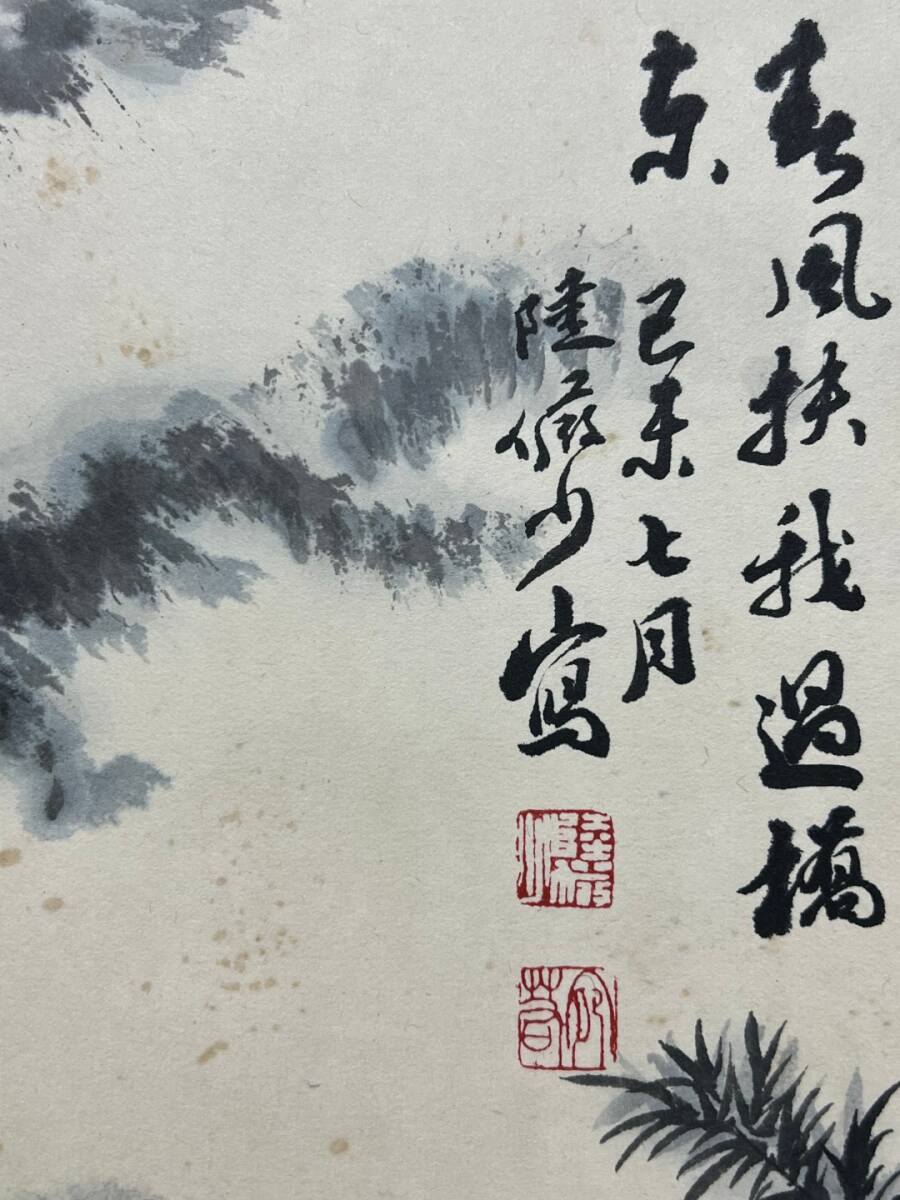 春風扶我過橋
东
己未七月
陸儼少寫
陸儼少
宛若